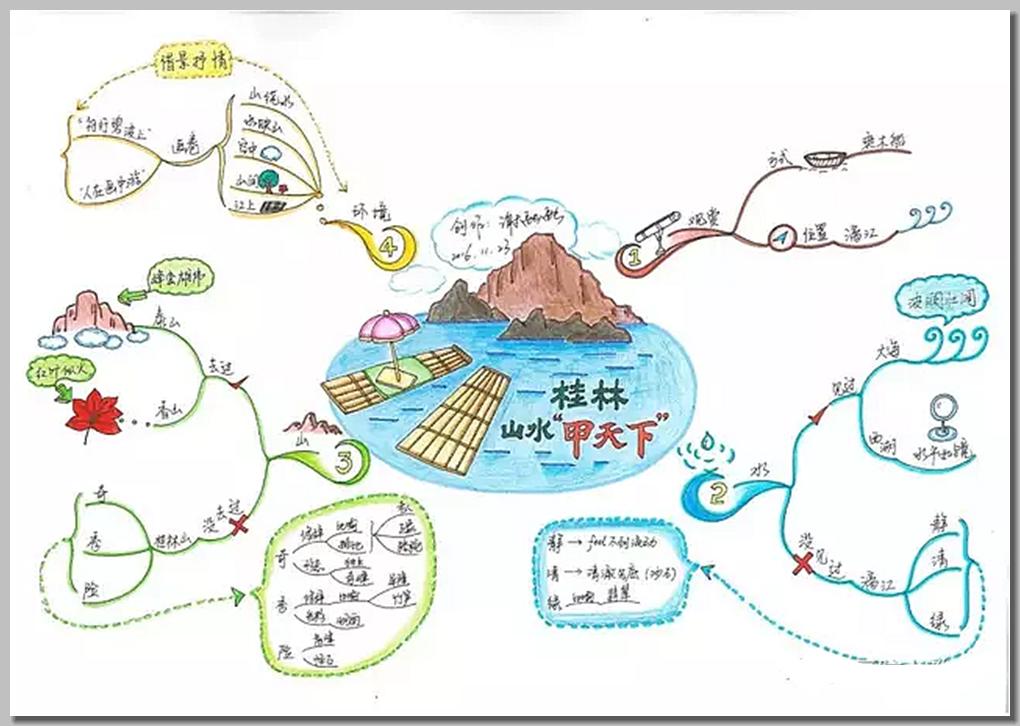 借景抒情
"舟行碧波上"
"人在画中游"
画卷
山绕水
水映山
空中
山间
江上
环境
4
创作:
2016.11.23
桂林
山水"甲天下"
1
观赏
方式
乘木船
位置
漓江
2
水
见过
大海
波澜壮阔
西湖
水平如镜
没见过
漓江
静
清
绿
静→feel不到流动
清→清澈见底(沙石)
绿 比喻 翡翠
3
山
去过
泰山
峰峦雄伟
香山
红叶似火
没去过
桂林山
奇
秀
险
奇
排比
奇峰
秀
比喻
竹笋
险
怪石